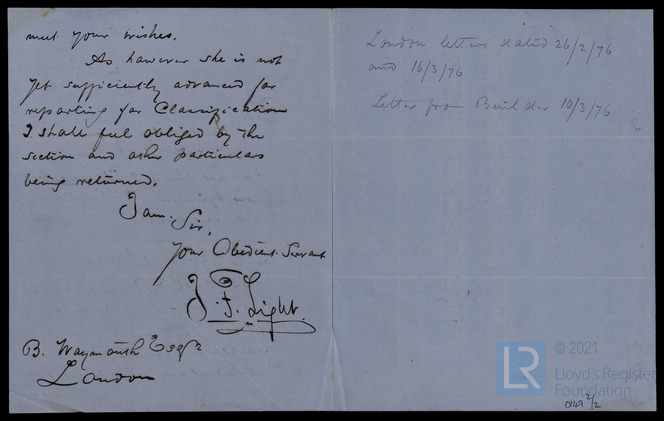 meet your wishes.
As however she is not
yet sufficiently advanced for
reporting for Classification
I shall feel obliged by the
section and other particulars
being returned.
I am. Sir,
your Obedient Servant
J. F. Light.
B. Waymouth Esqre
London
London letters dated 26/2/76
and 16/3/76
Letter from Builder 10/3/76
LR
© 2021
Lloyd's Register
Foundation
0149 2/2